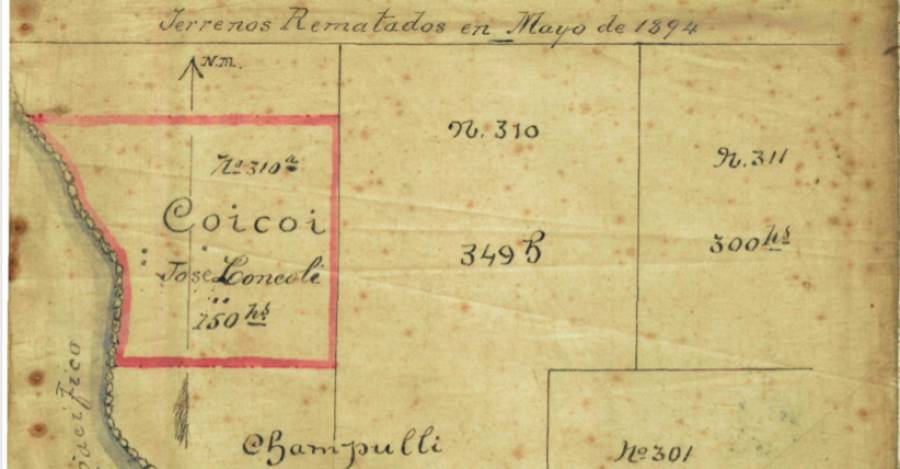 Terrenos Rematados en Mayo de 1894
N.M.
No 310a
Coicoi
Jose Loncoli
150 hs
N. 310
349 h
N. 311
300 hs
Champulli
No 301
Pacifico